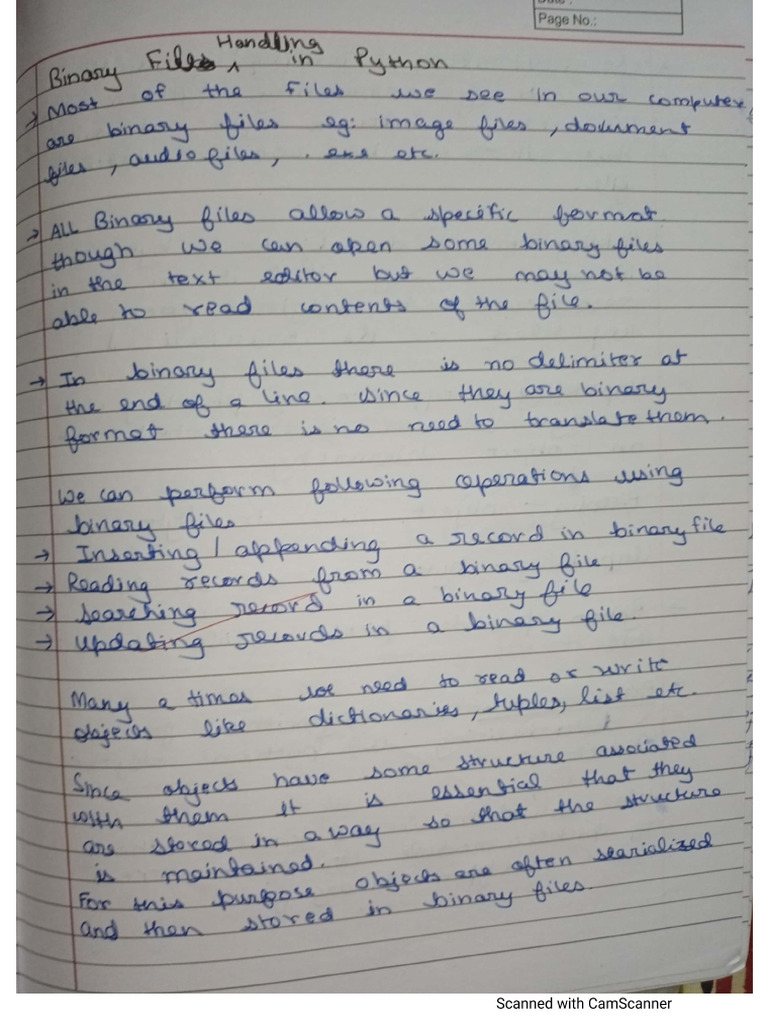 Page No.:
Binary Files Handling in Python
→ Most of the files we see in our computer
are binary files eg: image files, document
files, audio files, .exe etc.
→ ALL Binary files allow a specific format
though we can open some binary files
in the text editor but we may not be
able to read contents of the file.
→ In binary files there is no delimiter at
the end of a line. Since they are binary
format there is no need to translate them.
We can perform following operations using
binary files
→ Inserting / appending a record in binary file
→ Reading records from a binary file
→ searching record in a binary file
→ updating records in a binary file.
Many a times we need to read or write
objects like dictionaries, tuples, list etc.
Since objects have some structure associated
with them it is essential that they
are stored in a way so that the structure
is maintained.
For this purpose objects are often searialized
and then stored in binary files.
Scanned with CamScanner